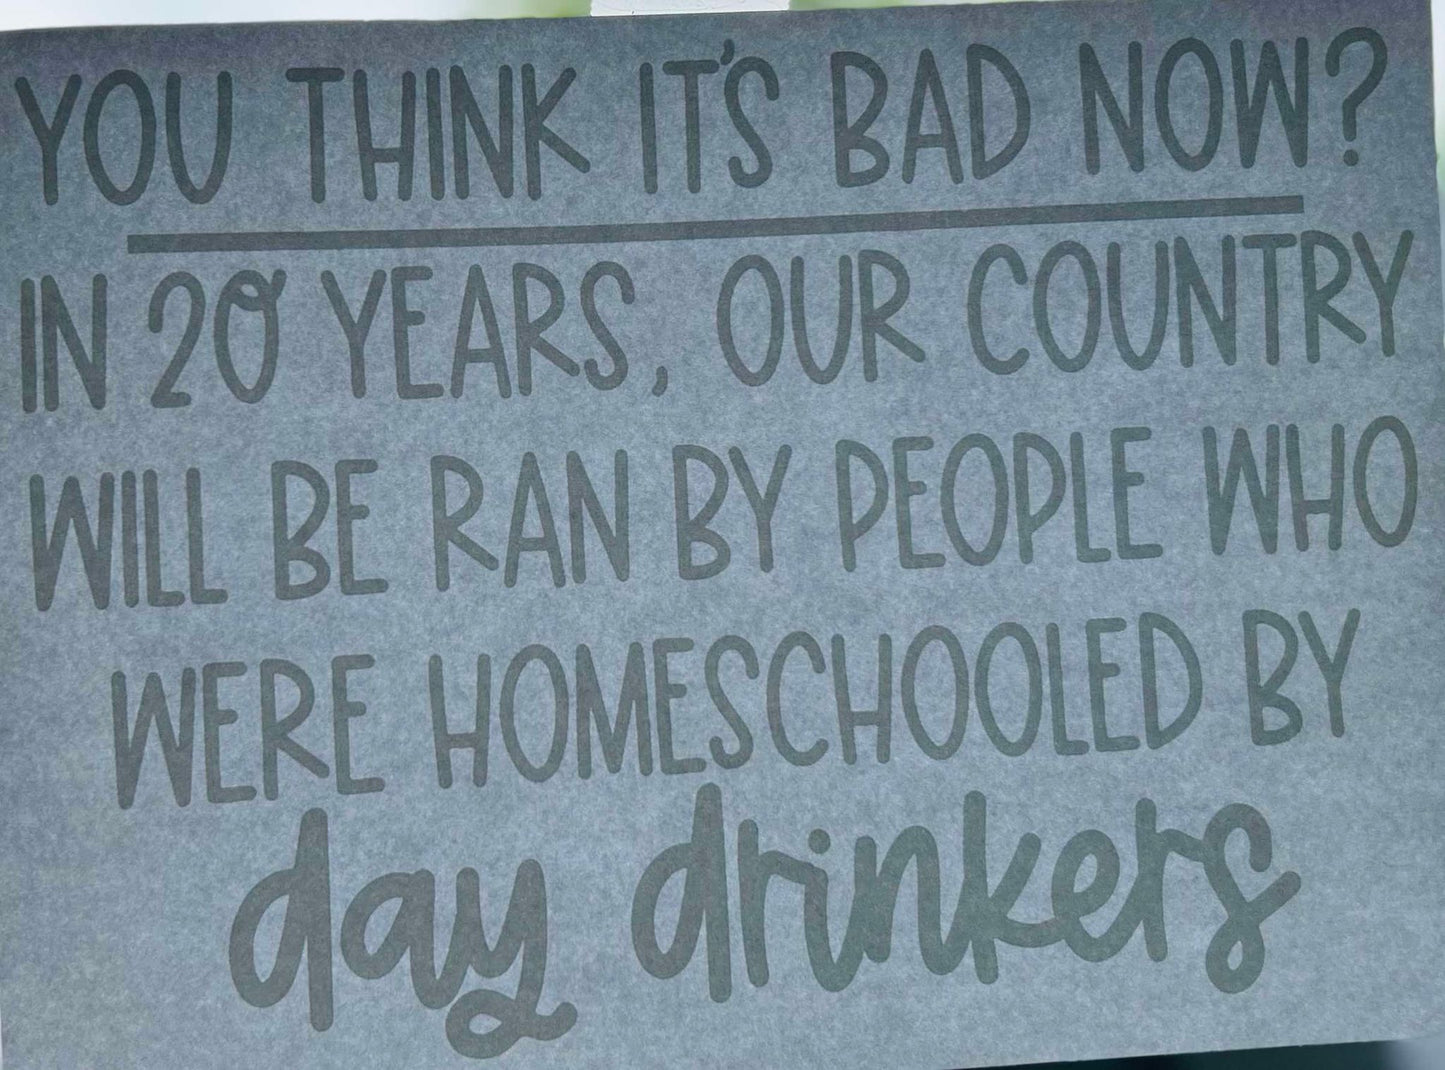 YOU THINK IT'S BAD NOW?
IN 20 YEARS, OUR COUNTRY
WILL BE RAN BY PEOPLE WHO
WERE HOMESCHOOLED BY
day drinkers